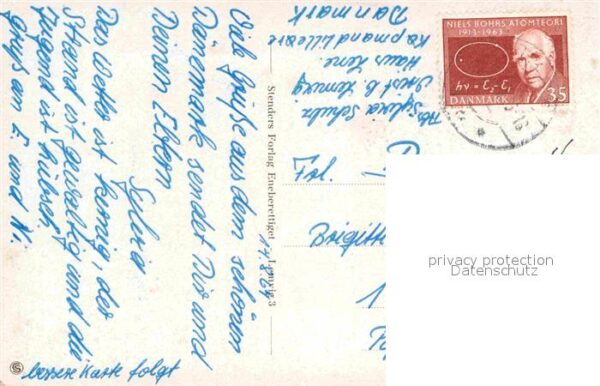 Viele Grüße aus dem schönen
Dänemark sendet Dir und
Deinen Eltern
Sylvia
Das Wetter ist herrig, der
Strand ist gewaltig und die
Jugend ist hübsch.
Gruß an E. und
bessere Karte folgt
Stenders Forlag Eneberettiget Lemvig 3
14.8.64
Abs. Sylvia Schulz
b. Lemvig
Haus Lene
Dänmark
NIELS BOHRS ATOMTEORI
1913-1963
hν = E₂-E₁
DANMARK 35
Frl.
Brigitte
1
privacy protection
Datenschutz